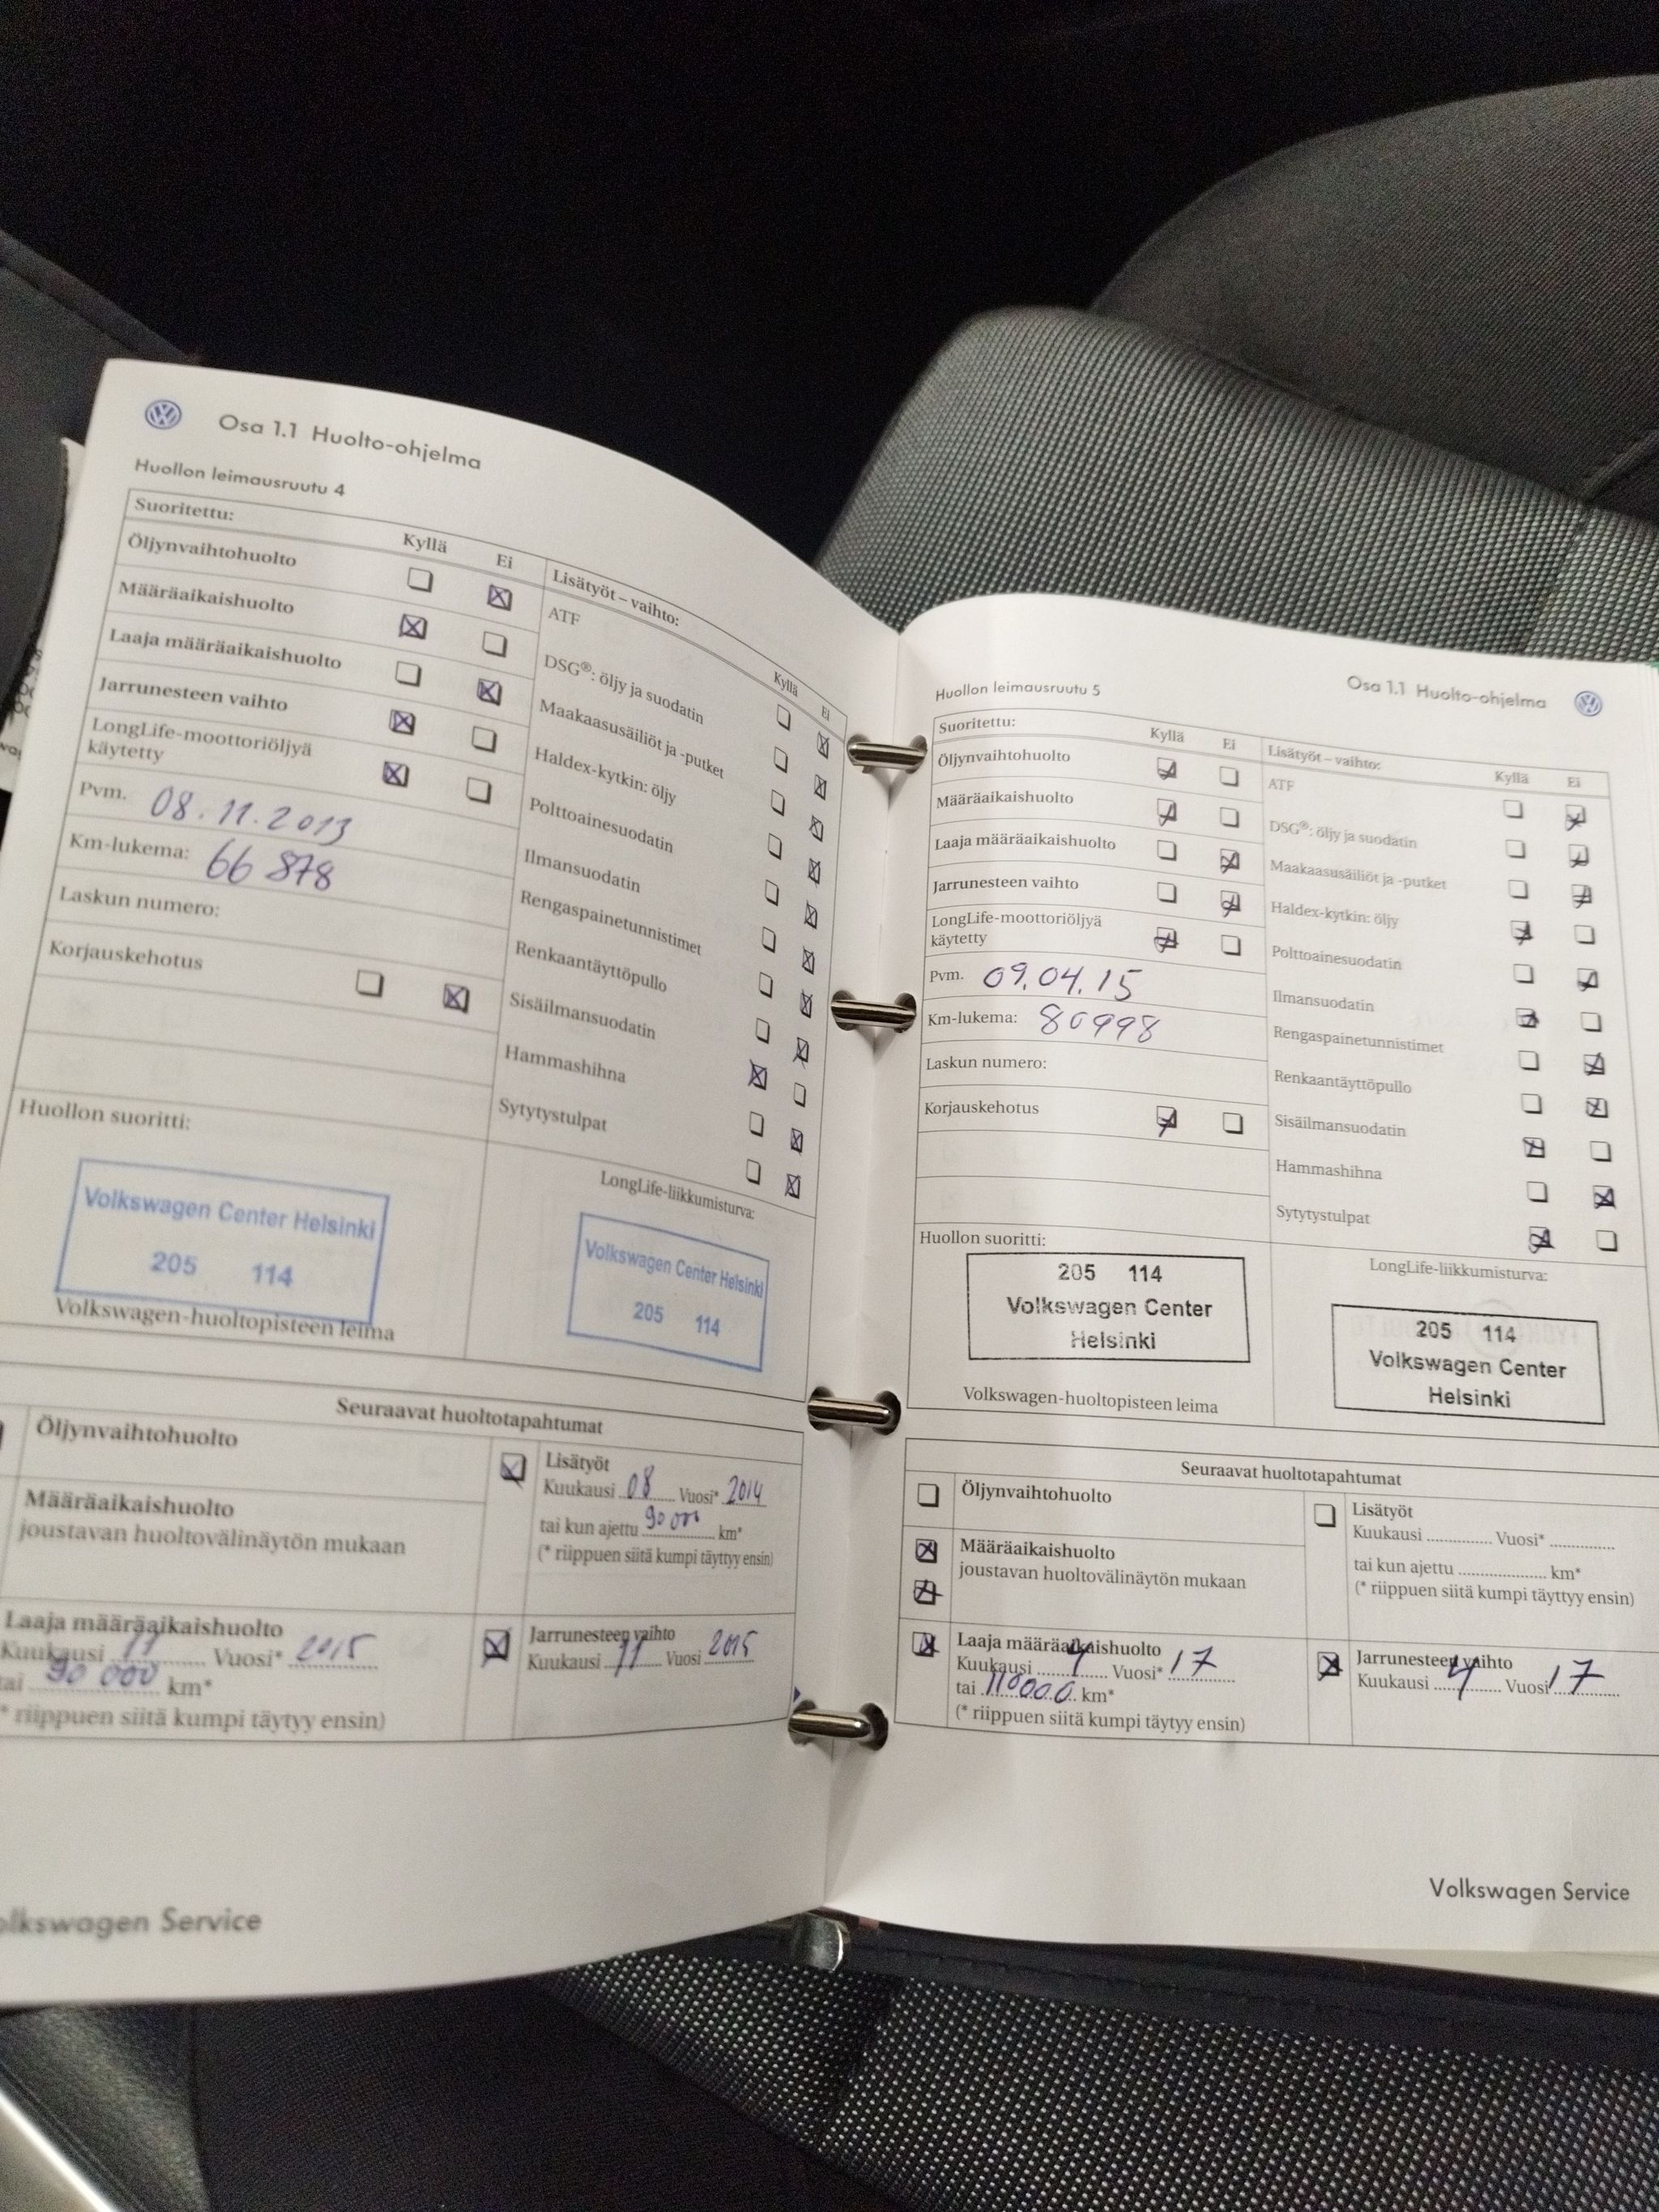 Osa 1.1 Huolto-ohjelma
Huollon leimausruutu 4
Suoritettu:
Kyllä Ei
Öljynvaihtohuolto
Määräaikaishuolto
Laaja määräaikaishuolto
Jarrunesteen vaihto
LongLife-moottoriöljyä
käytetty
Pvm. 08.11.2013
Km-lukema: 66 878
Laskun numero:
Korjauskehotus
Lisätyöt – vaihto:
Kyllä Ei
ATF
DSG®: öljy ja suodatin
Maakaasusäiliöt ja -putket
Haldex-kytkin: öljy
Polttoainesuodatin
Ilmansuodatin
Rengaspainetunnistimet
Renkaantäyttöpullo
Sisäilmansuodatin
Hammashihna
Sytytystulpat
Huollon suoritti:
Volkswagen Center Helsinki
205 114
Volkswagen-huoltopisteen leima
LongLife-liikkumisturva:
Volkswagen Center Helsinki
205 114
Seuraavat huoltotapahtumat
Öljynvaihtohuolto
Määräaikaishuolto
joustavan huoltovälinäytön mukaan
Lisätyöt
Kuukausi 08 Vuosi* 2014
tai kun ajettu 90 000 km*
(* riippuen siitä kumpi täyttyy ensin)
Laaja määräaikaishuolto
Kuukausi 11 Vuosi* 2015
tai 90 000 km*
(* riippuen siitä kumpi täytyy ensin)
Jarrunesteen vaihto
Kuukausi 11 Vuosi 2015
Volkswagen Service
Osa 1.1 Huolto-ohjelma
Huollon leimausruutu 5
Suoritettu:
Kyllä Ei
Öljynvaihtohuolto
Määräaikaishuolto
Laaja määräaikaishuolto
Jarrunesteen vaihto
LongLife-moottoriöljyä
käytetty
Pvm. 09.04.15
Km-lukema: 80998
Laskun numero:
Korjauskehotus
Lisätyöt – vaihto:
Kyllä Ei
ATF
DSG®: öljy ja suodatin
Maakaasusäiliöt ja -putket
Haldex-kytkin: öljy
Polttoainesuodatin
Ilmansuodatin
Rengaspainetunnistimet
Renkaantäyttöpullo
Sisäilmansuodatin
Hammashihna
Sytytystulpat
Huollon suoritti:
205 114
Volkswagen Center
Helsinki
Volkswagen-huoltopisteen leima
LongLife-liikkumisturva:
205 114
Volkswagen Center
Helsinki
Seuraavat huoltotapahtumat
Öljynvaihtohuolto
Määräaikaishuolto
joustavan huoltovälinäytön mukaan
Lisätyöt
Kuukausi .............. Vuosi* ..............
tai kun ajettu .................... km*
(* riippuen siitä kumpi täyttyy ensin)
Laaja määräaikaishuolto
Kuukausi 4 Vuosi* 17
tai 110000 km*
(* riippuen siitä kumpi täytyy ensin)
Jarrunesteen vaihto
Kuukausi 4 Vuosi 17
Volkswagen Service